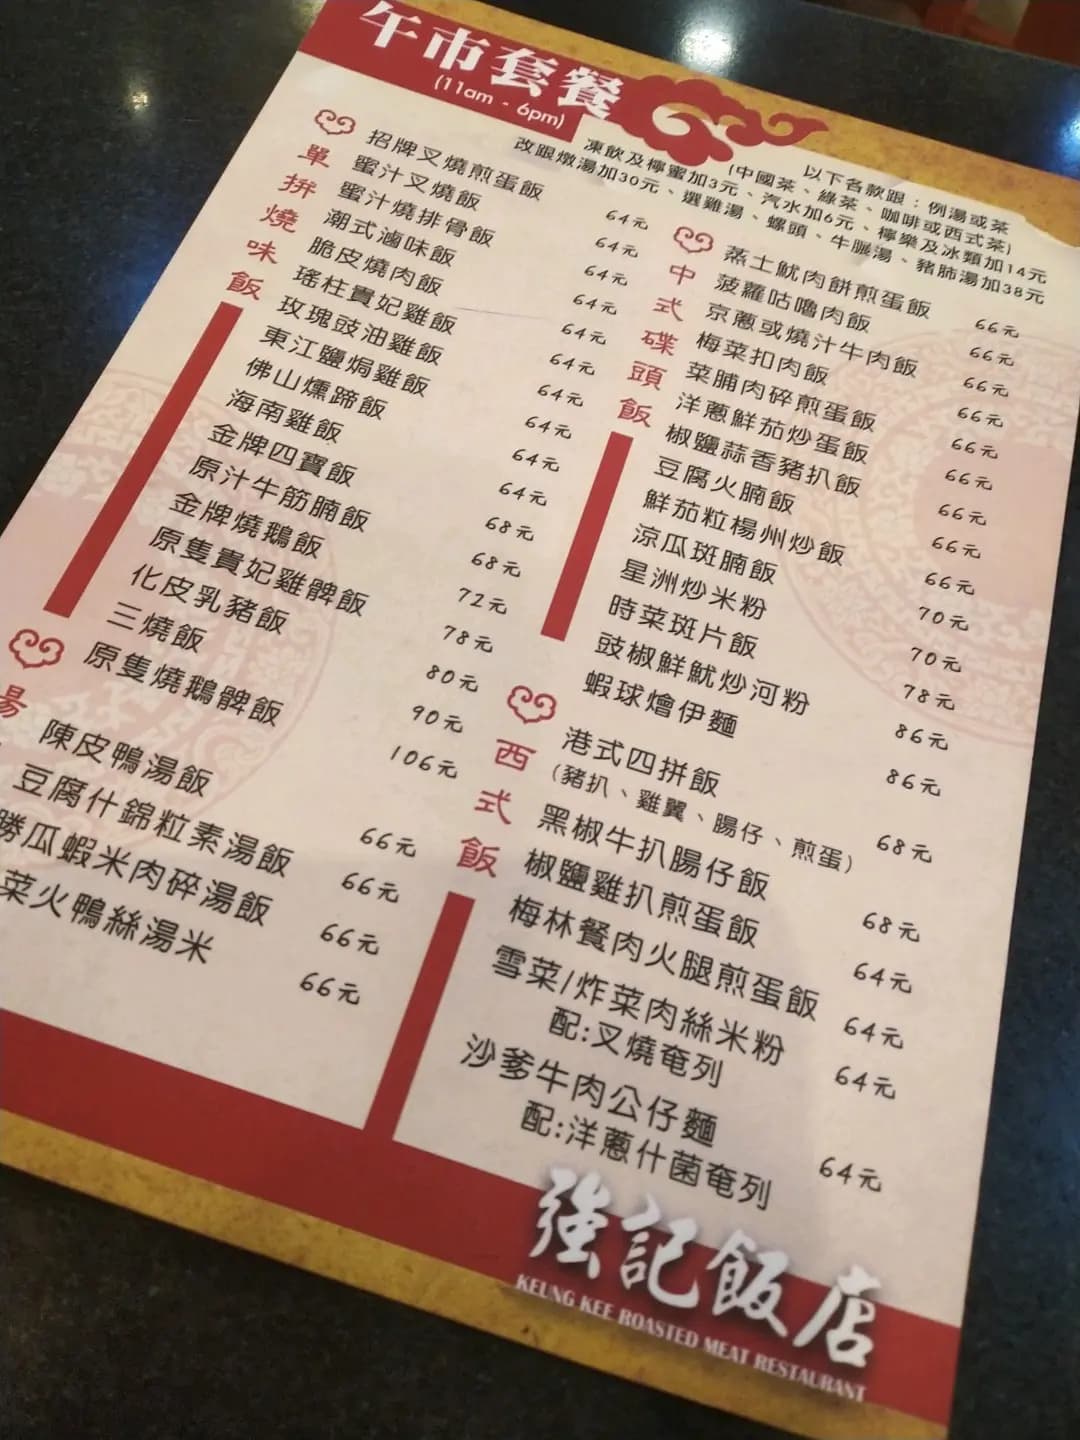 午市套餐
(11am - 6pm)
以下各款跟：例湯或茶
(中國茶、綠茶、咖啡或西式茶)
凍飲及檸蜜加3元、汽水加6元、檸樂及冰類加14元
改跟燉湯加30元、選雞湯、螺頭、牛𦟌湯、豬肺湯加38元
單拼燒味飯
招牌叉燒煎蛋飯 64元
蜜汁叉燒飯 64元
蜜汁燒排骨飯 64元
潮式滷味飯 64元
脆皮燒肉飯 64元
瑤柱貴妃雞飯 64元
玫瑰豉油雞飯 64元
東江鹽焗雞飯 64元
佛山燻蹄飯 64元
海南雞飯 64元
金牌四寶飯 68元
原汁牛筋腩飯 68元
金牌燒鵝飯 72元
原隻貴妃雞髀飯 78元
化皮乳豬飯 80元
三燒飯 90元
原隻燒鵝髀飯 106元
湯
陳皮鴨湯飯 66元
豆腐什錦粒素湯飯 66元
勝瓜蝦米肉碎湯飯 66元
菜火鴨絲湯米 66元
中式碟頭飯
蒸土魷肉餅煎蛋飯 66元
菠蘿咕嚕肉飯 66元
京蔥或燒汁牛肉飯 66元
梅菜扣肉飯 66元
菜脯肉碎煎蛋飯 66元
洋蔥鮮茄炒蛋飯 66元
椒鹽蒜香豬扒飯 66元
豆腐火腩飯 66元
鮮茄粒楊州炒飯 66元
涼瓜斑腩飯 70元
星洲炒米粉 70元
時菜斑片飯 78元
豉椒鮮魷炒河粉 86元
蝦球燴伊麵 86元
西式飯
港式四拼飯 68元
(豬扒、雞翼、腸仔、煎蛋)
黑椒牛扒腸仔飯 68元
椒鹽雞扒煎蛋飯 64元
梅林餐肉火腿煎蛋飯 64元
雪菜/炸菜肉絲米粉 64元
配:叉燒奄列
沙爹牛肉公仔麵 64元
配:洋蔥什菌奄列
強記飯店
KEUNG KEE ROASTED MEAT RESTAURANT